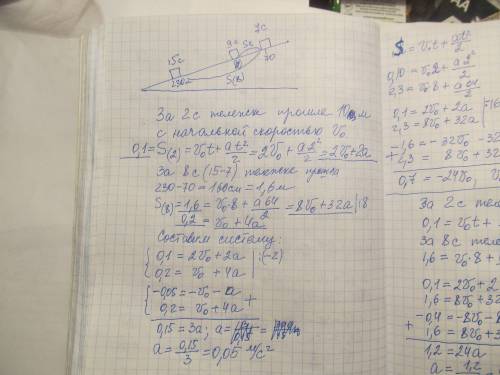 7с
9с 5с
15с
70
230
S(8)
За 2с тележка прошла 10 м
с начальной скоростью V₀
0,1 = S(2) = V₀t + at²/2 = 2V₀ + a2²/2 = 2V₀+2a
За 8с (15-7) тележка прошла
230-70=160см=1,6м
S(8) = 1,6 = V₀·8 + a64/2 = 8V₀+32a |:8
0,2 = V₀ + 4a
Составим систему:
0,1 = 2V₀ + 2a |:(-2)
0,2 = V₀ + 4a
-0,05 = -V₀ - a
0,2 = V₀ + 4a +
0,15 = 3a; a =
a = 0,15/3 = 0,05 м/с²
S = V₀t + at²/2
0,10 = V₀2 + a2²/2
2,3 = V₀·8 + a64/2
0,1 = 2V₀ + 2a
2,3 = 8V₀ + 32a
-1,6 = -32V₀ - 32
+ 2,3 = 8V₀ + 32
0,7 = -24V₀
За 2с теле
0,1 = V₀t +
За 8с
1,6 = V₀·8 +
0,1 = 2V₀ + 2
1,6 = 8V₀ + 32
-0,4 = -8V₀ - 8
+ 1,6 = 8V₀ + 32
1,2 = 24a
a = 1,2